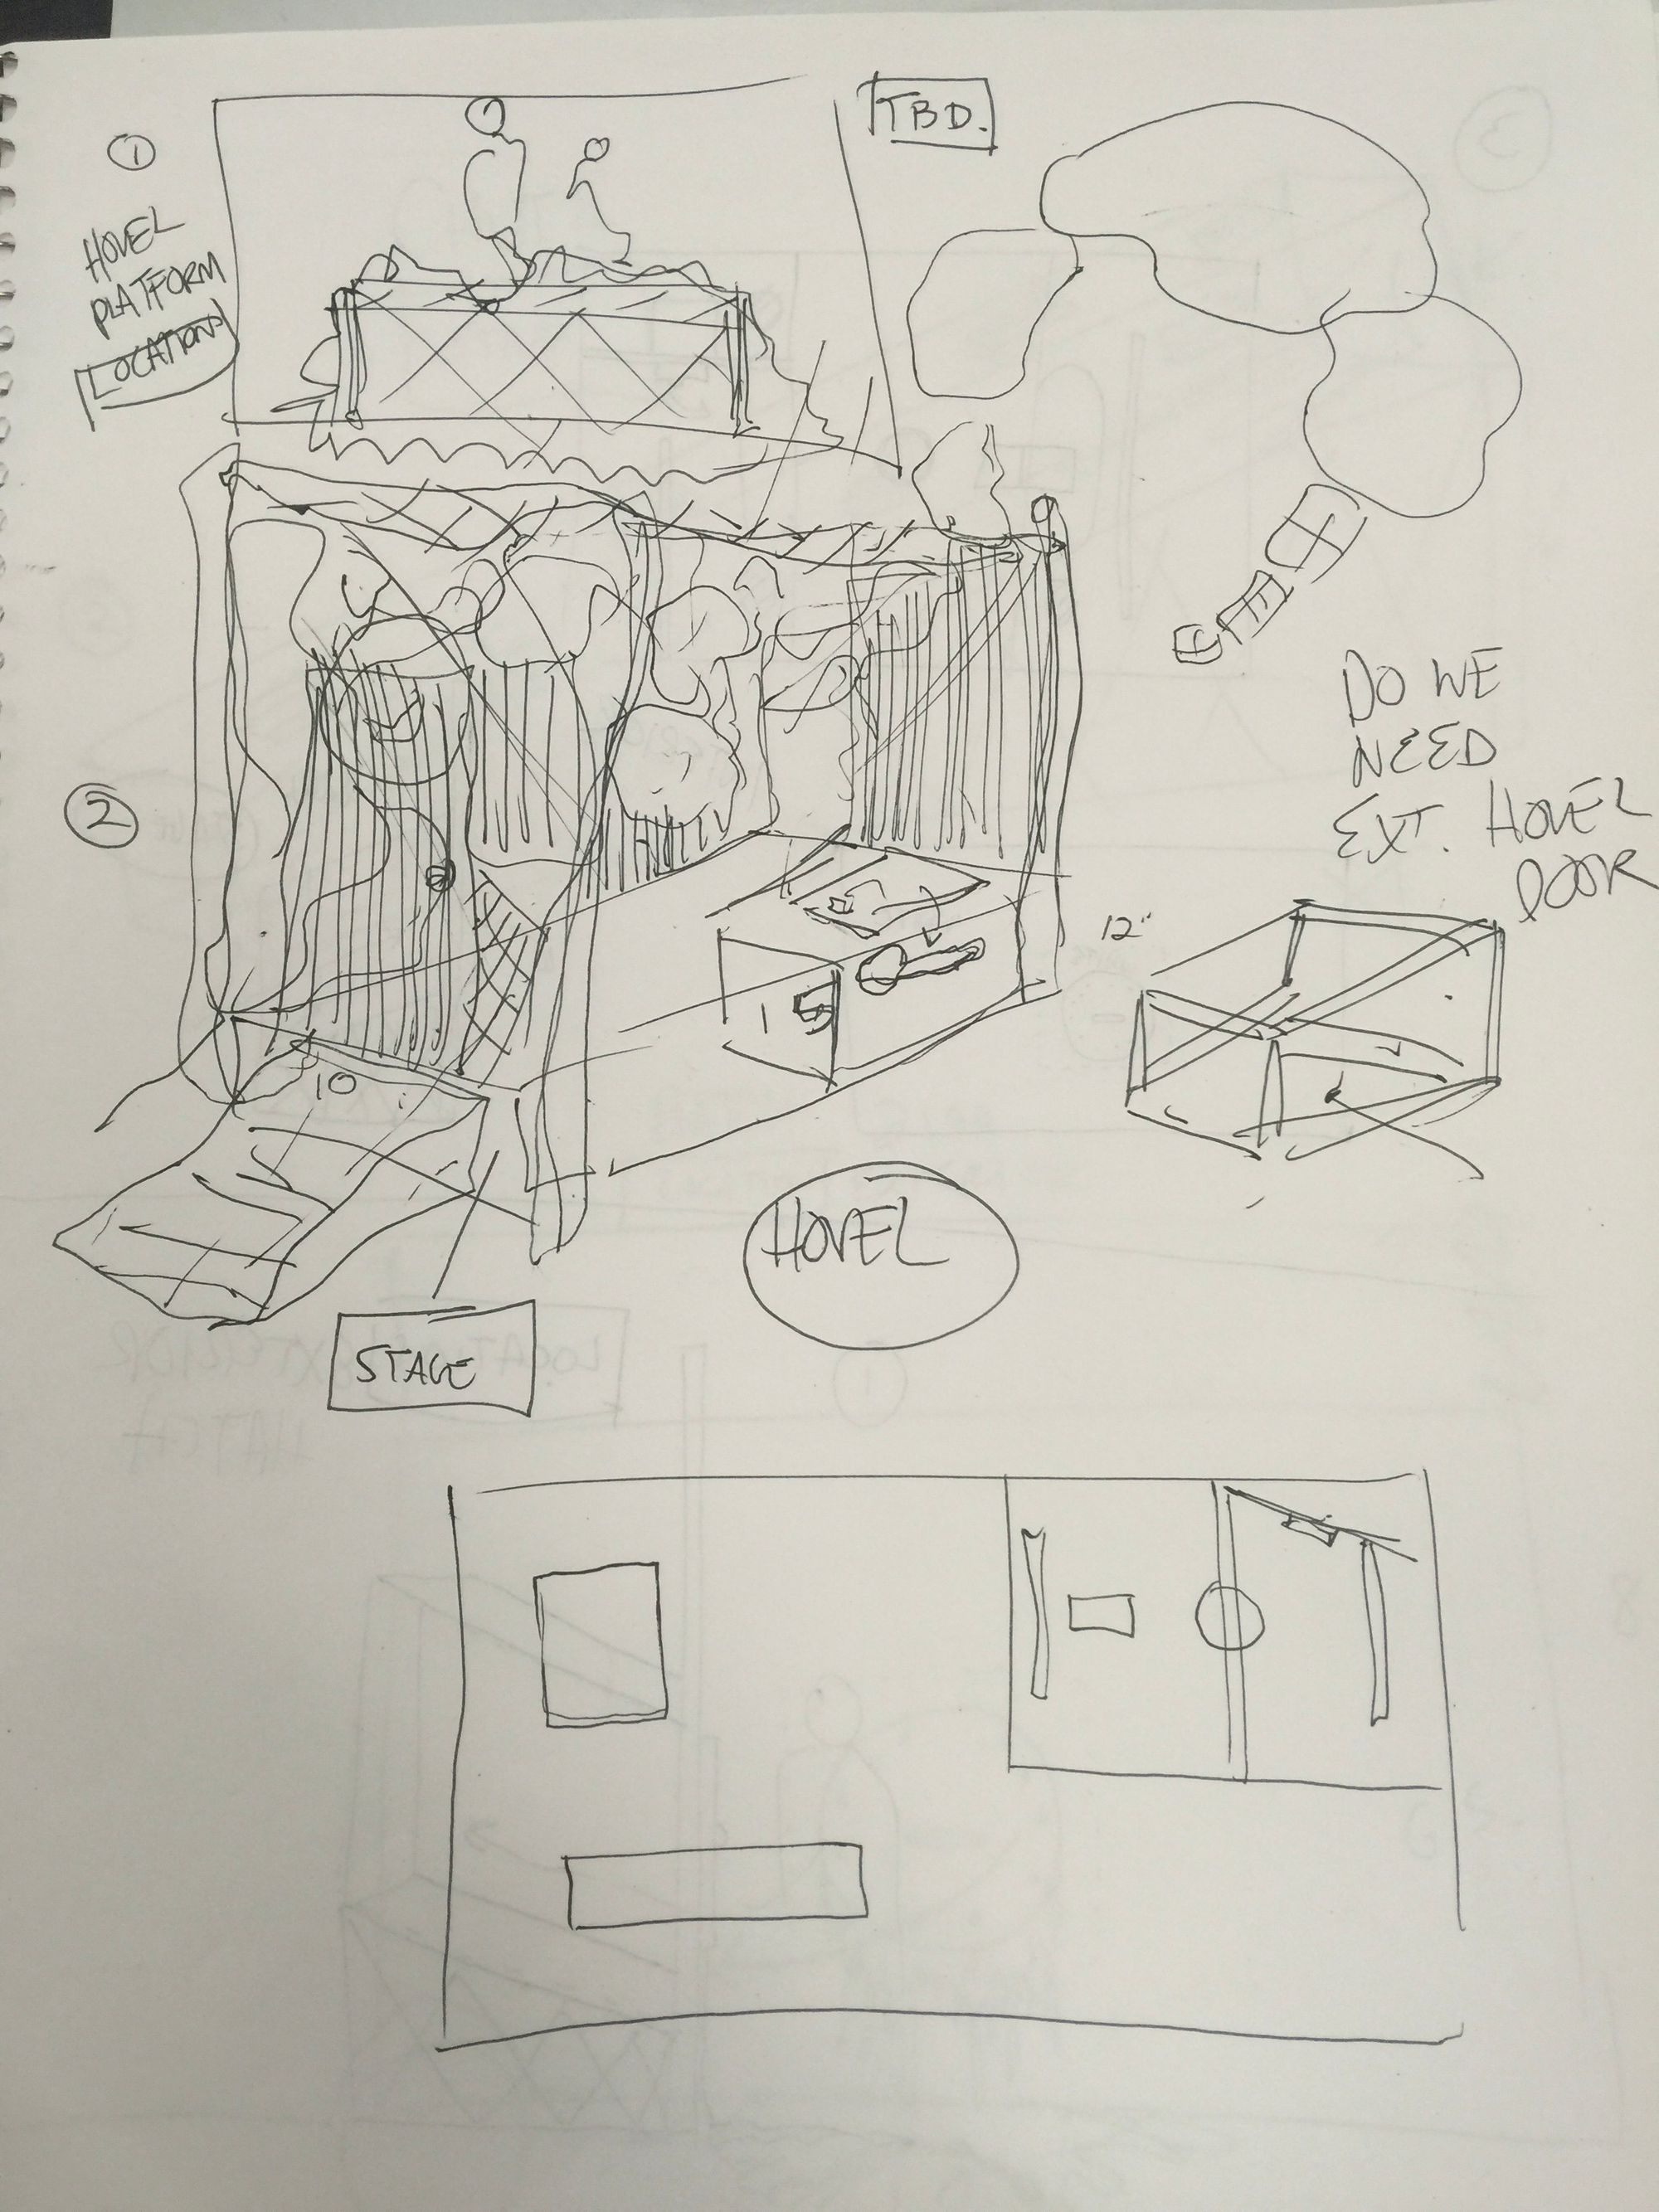 1
HOVEL
PLATFORM
LOCATIONS
TBD.
2
DO WE
NEED
EXT. HOVEL
DOOR
12"
10
HOVEL
STAGE